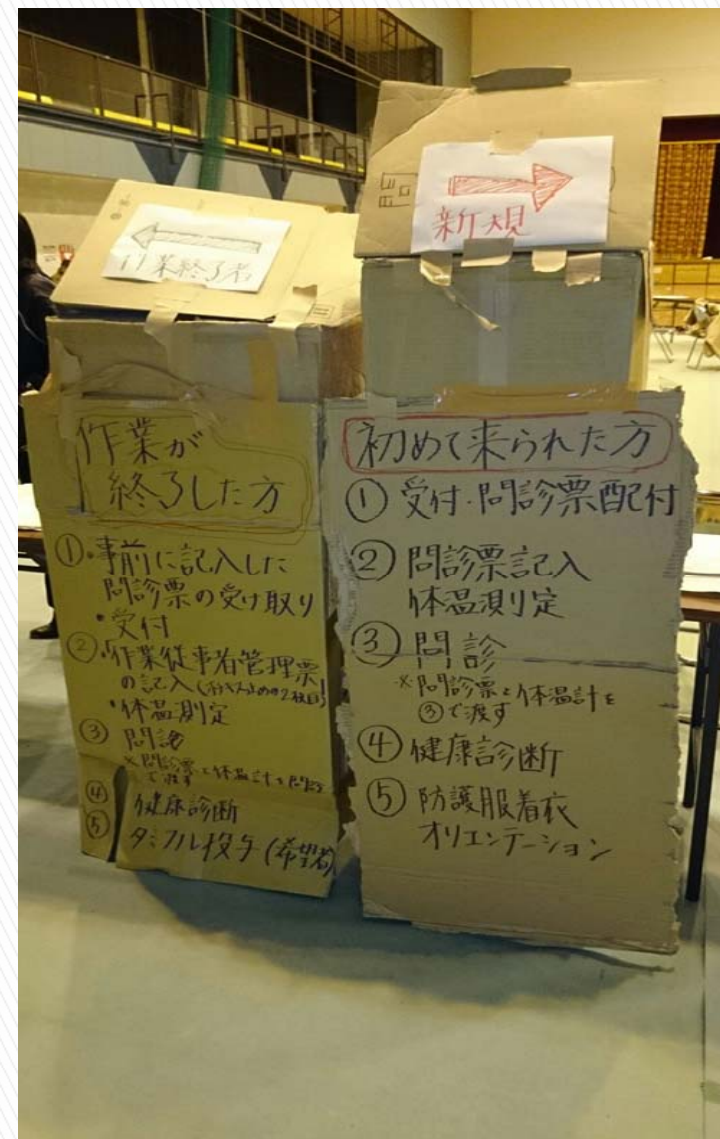 作業終了者
作業が
終了した方
①・事前に記入した
問診票の受け取り
・受付
②・作業従事者管理票
の記入
・体温測定
③ 問診
※問診票と体温計を
で渡す
④ 健康診断
⑤ タミフル投与(希望者)
新規
初めて来られた方
① 受付・問診票配付
② 問診票記入
体温測定
③ 問診
※問診票と体温計を
③で渡す
④ 健康診断
⑤ 防護服着衣
オリエンテーション